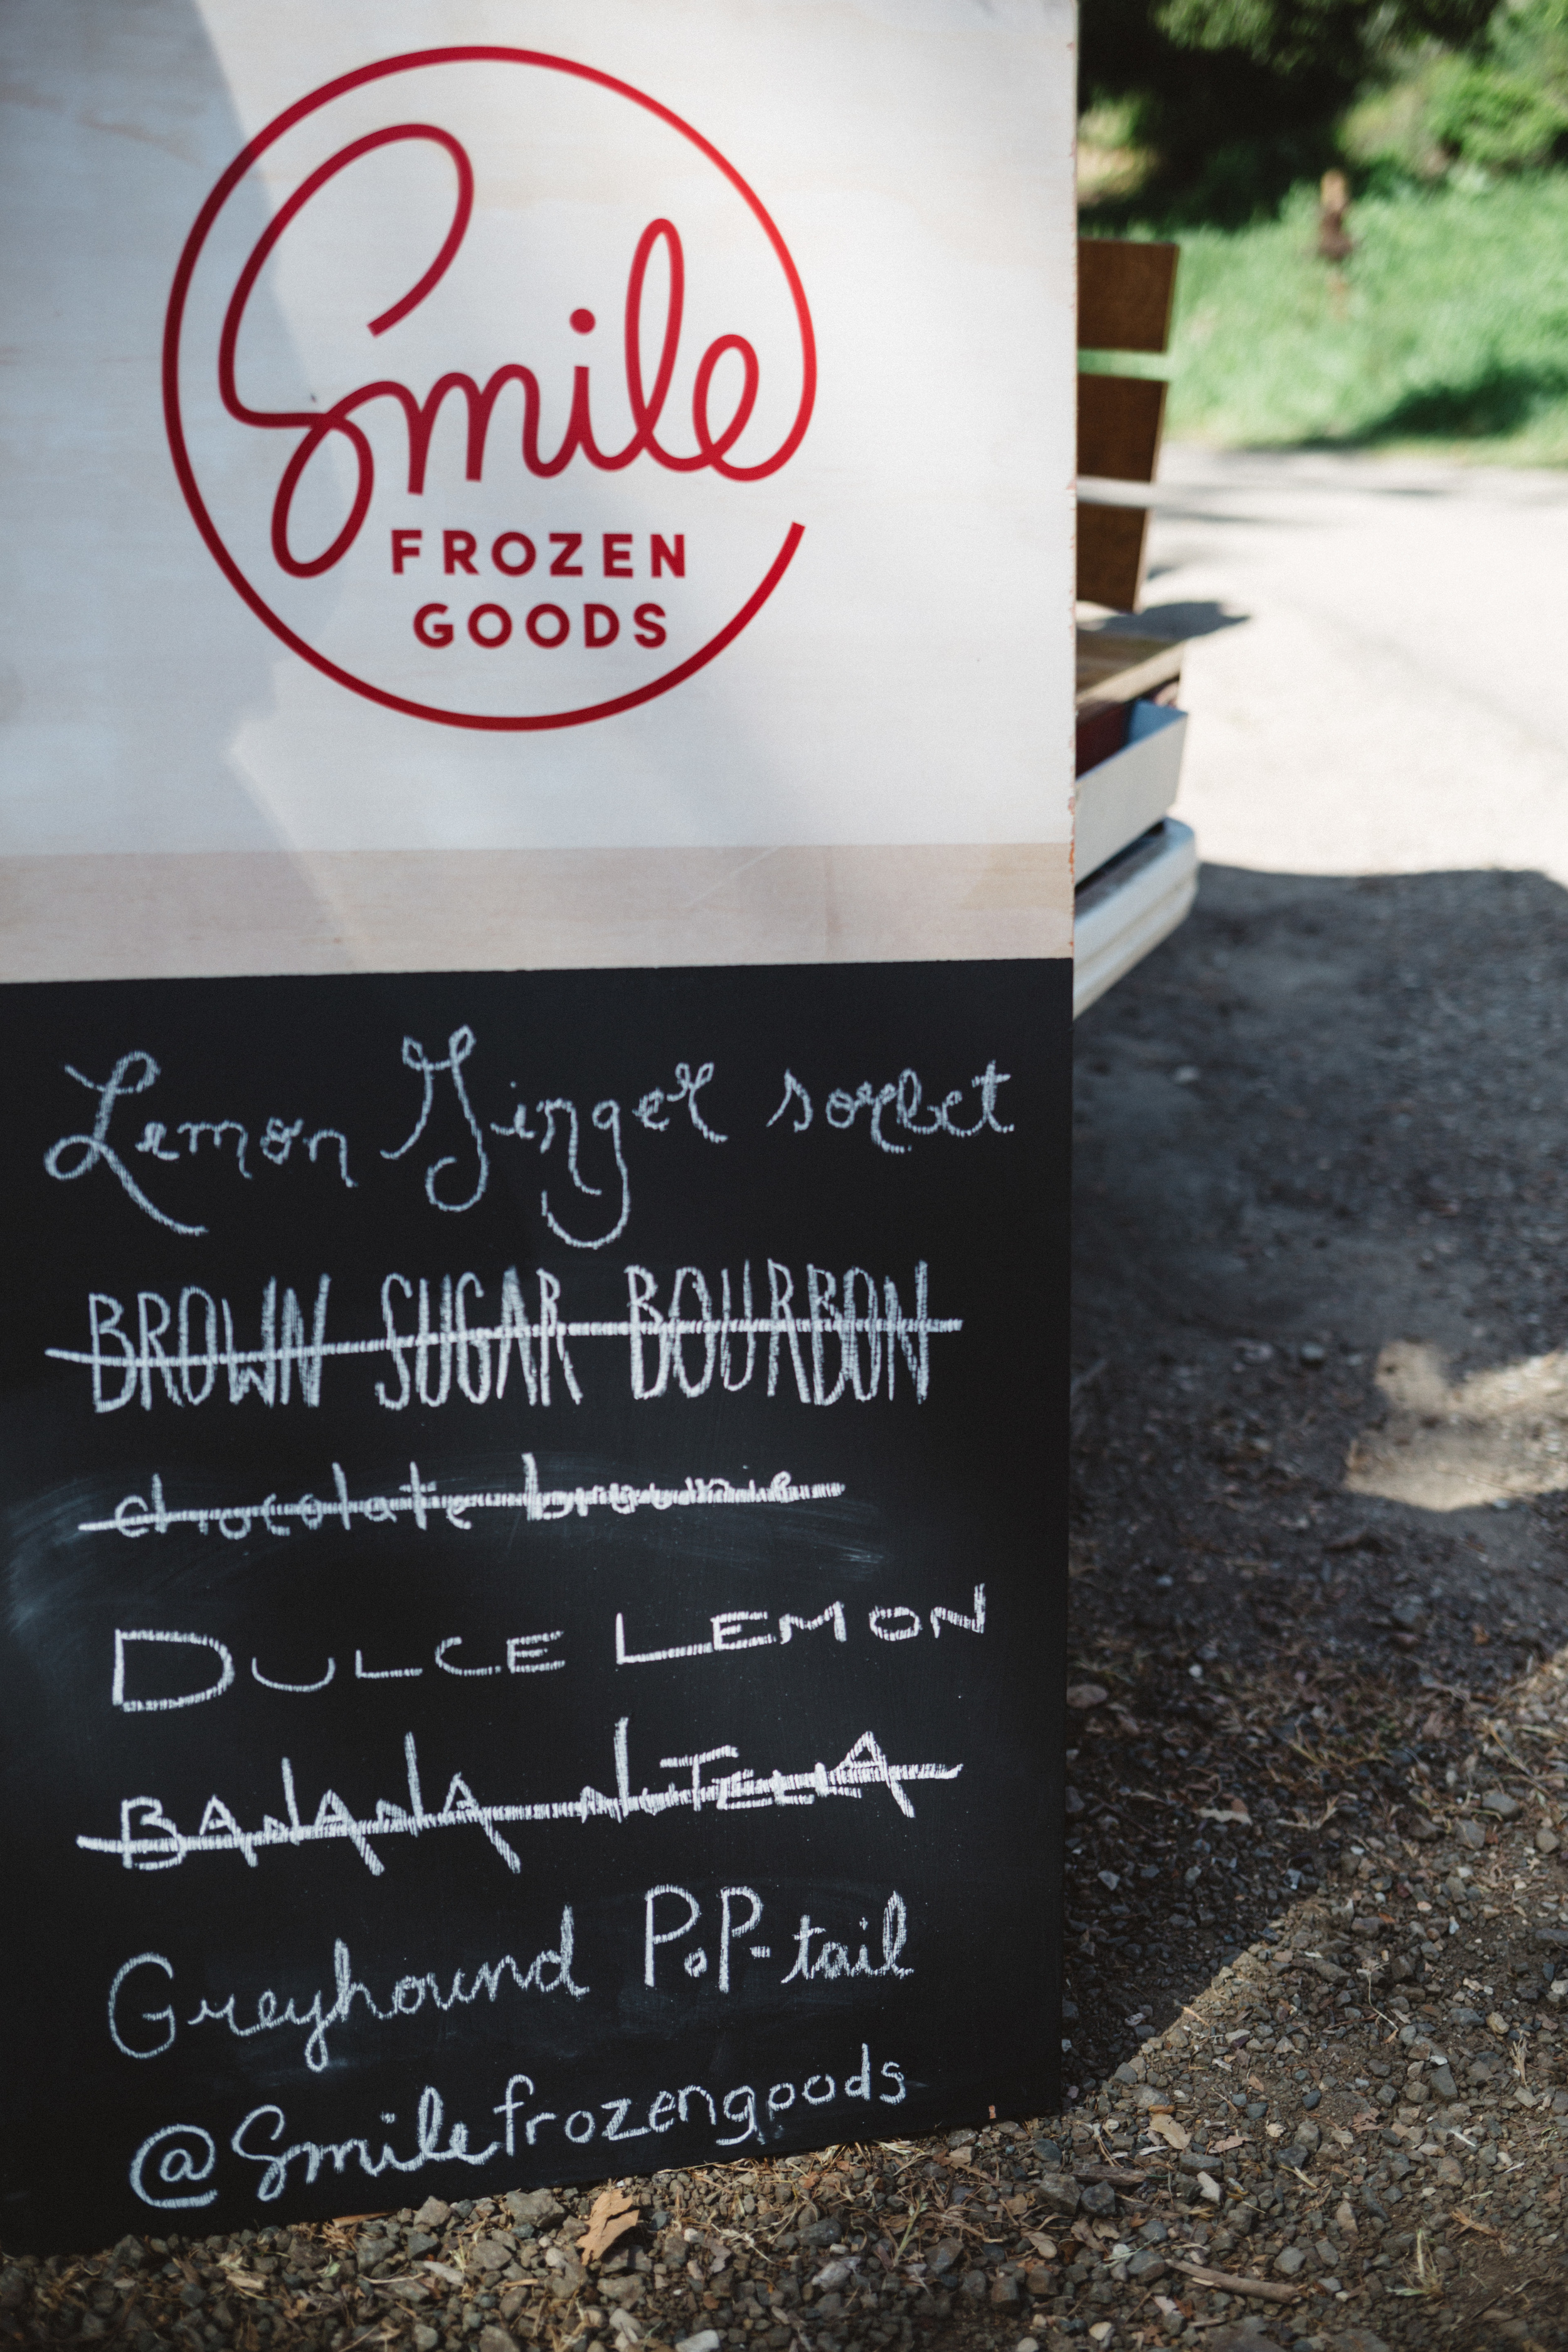 Smile
FROZEN
GOODS
Lemon Ginger sorbet
BROWN SUGAR BOURBON
chocolate brownie
DULCE LEMON
BANANA NUTELLA
Greyhound PoP-tail
@Smilefrozengoods